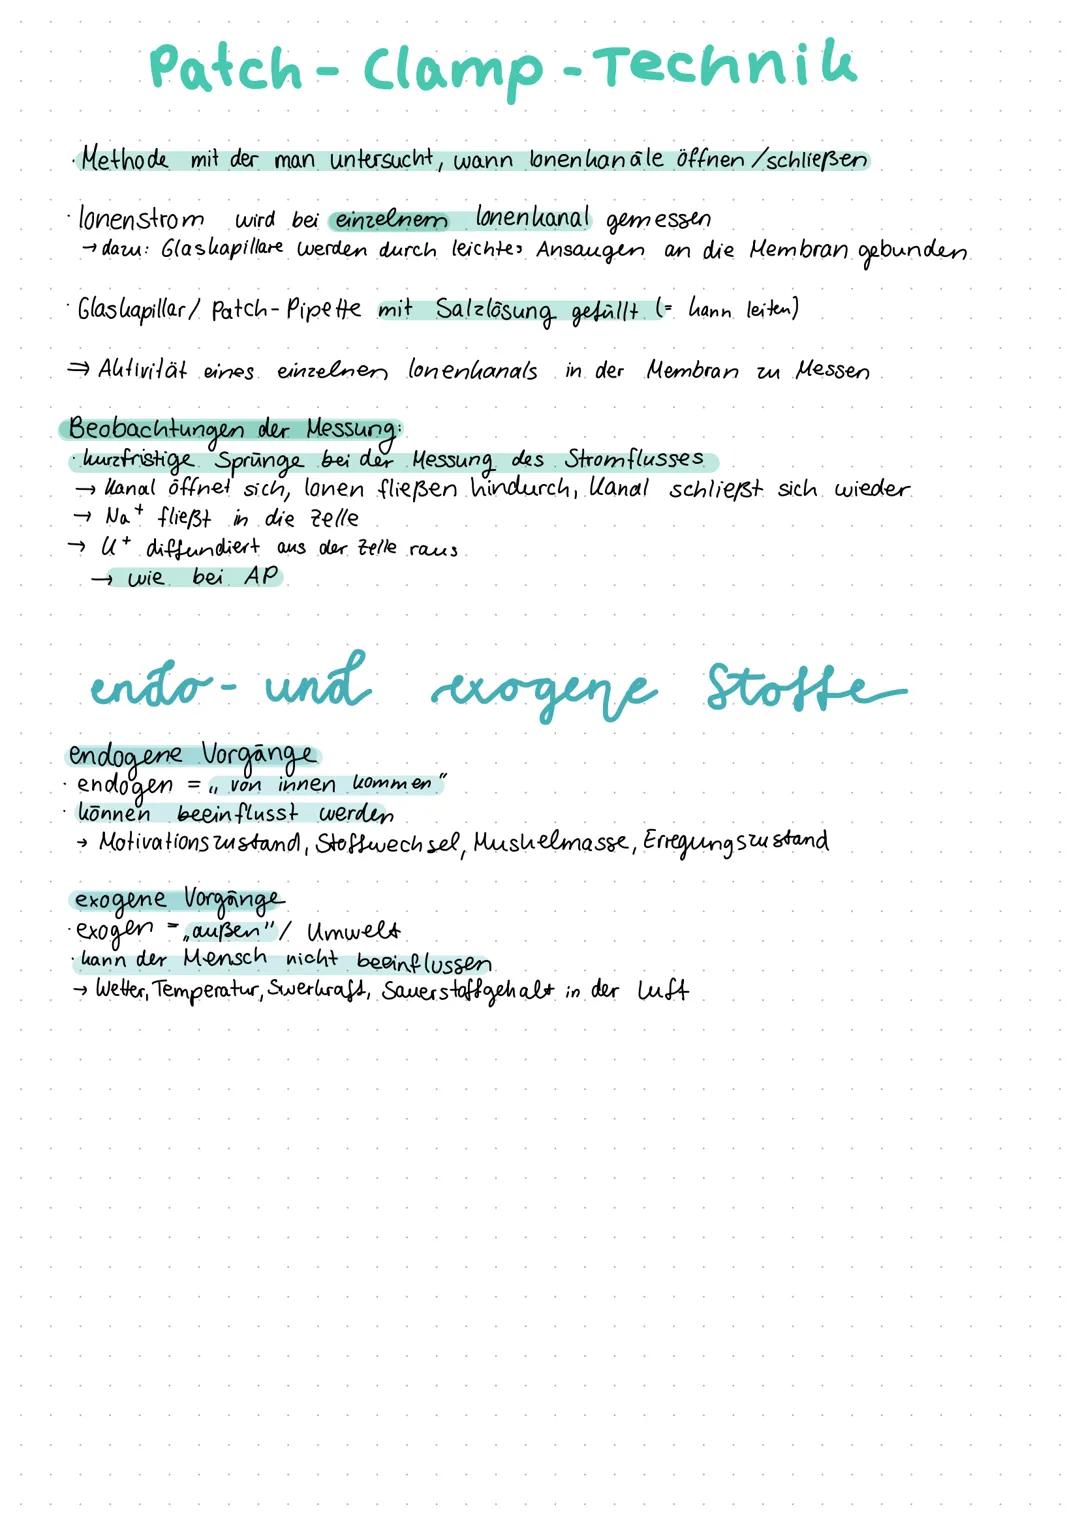 Patch-Clamp-Technik
· Methode mit der man untersucht, wann Ionenkanäle öffnen/schließen
· Ionenstrom wird bei einzelnem Ionenkanal gemessen
→ dazu: Glaskapillare werden durch leichtes Ansaugen an die Membran gebunden
· Glaskapillar/ Patch-Pipette mit Salzlösung gefüllt (= kann leiten)
⇒ Aktivität eines einzelnen Ionenkanals in der Membran zu Messen
Beobachtungen der Messung:
· kurzfristige Sprünge bei der Messung des Stromflusses
→ Kanal öffnet sich, Ionen fließen hindurch, Kanal schließt sich wieder
→ Na⁺ fließt in die Zelle
→ K⁺ diffundiert aus der Zelle raus
→ wie bei AP
endo- und exogene Stoffe
endogene Vorgänge
· endogen = „von innen kommen"
· können beeinflusst werden
→ Motivationszustand, Stoffwechsel, Muskelmasse, Erregungszustand
exogene Vorgänge
· exogen = „außen"/ Umwelt
· kann der Mensch nicht beeinflussen
→ Wetter, Temperatur, Swerkraft, Sauerstoffgehalt in der Luft